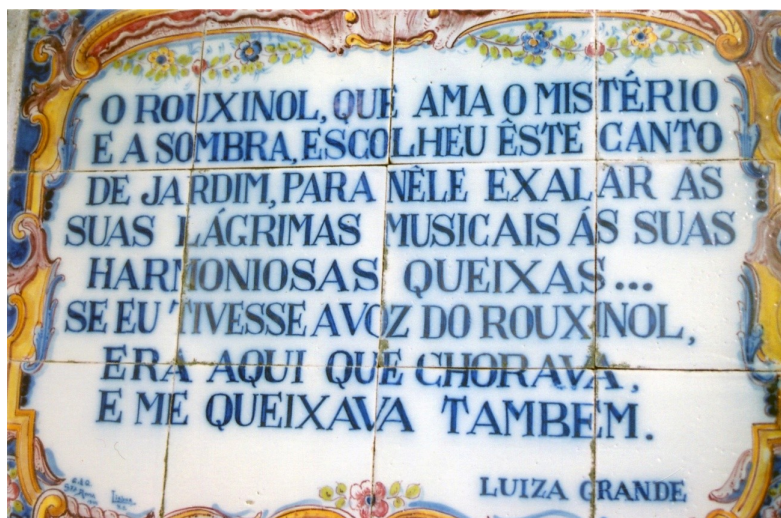 O ROUXINOL, QUE AMA O MISTÉRIO
E A SOMBRA, ESCOLHEU ÊSTE CANTO
DE JARDIM, PARA NÊLE EXALAR AS
SUAS LÁGRIMAS MUSICAIS ÁS SUAS
HARMONIOSAS QUEIXAS...
SE EU TIVESSE A VOZ DO ROUXINOL,
ERA AQUI QUE CHORAVA,
E ME QUEIXAVA TAMBEM.
LUIZA GRANDE